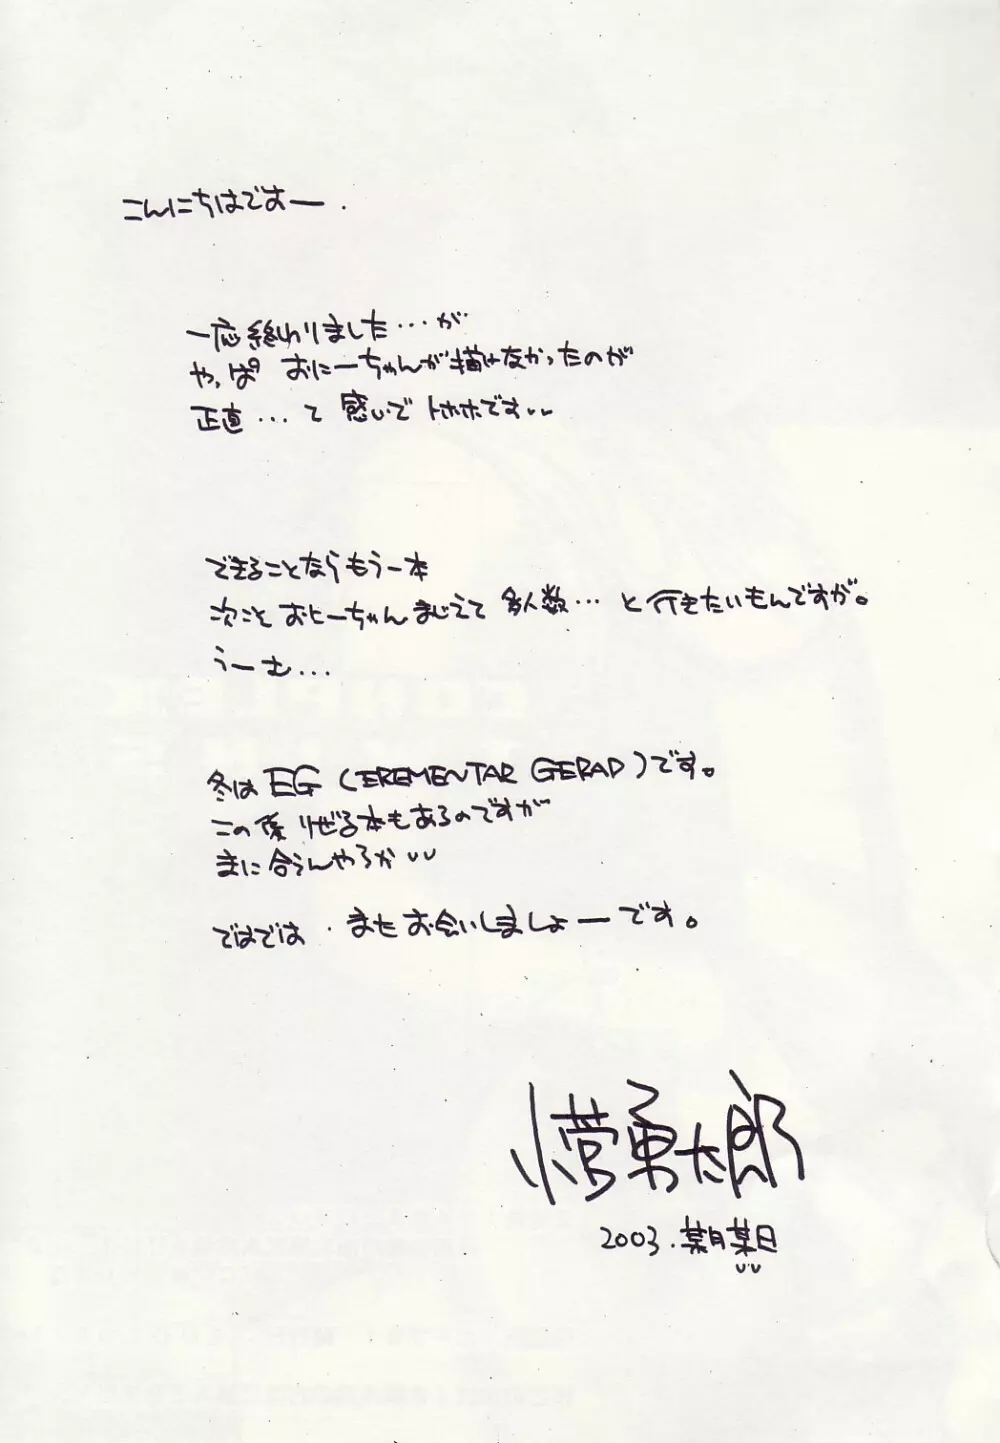 こんにちはですー.
一応終わりました…が
やっぱ おにーちゃんが描けなかったのが
正直…て 感じで トホホです
できることならもう一本
次こそ おにーちゃんまじえて 多人数…と行きたいもんですが。
うーむ…
冬は EG (EREMENTAR GERAD)です。
この係 りぜる本もあるのですが
まに合うんやろか
ではでは . またお会いしましょーです。
小菅勇太郎
2003.某月某日